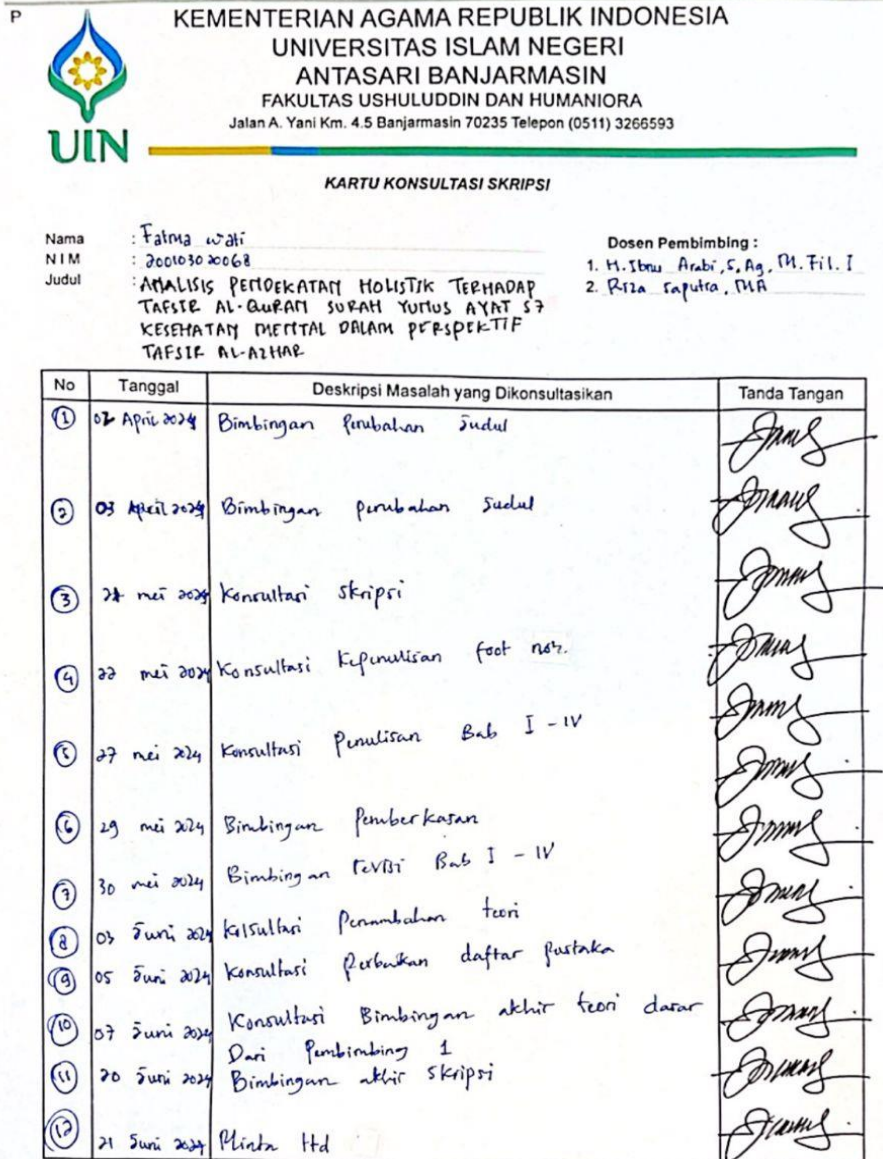 P
KEMENTERIAN AGAMA REPUBLIK INDONESIA
UNIVERSITAS ISLAM NEGERI
ANTASARI BANJARMASIN
FAKULTAS USHULUDDIN DAN HUMANIORA
Jalan A. Yani Km. 4.5 Banjarmasin 70235 Telepon (0511) 3266593
UIN
KARTU KONSULTASI SKRIPSI
Nama : Fatma wati
NIM : 200103020068
Judul : ANALISIS PENDEKATAN HOLISTIK TERHADAP
TAFSIR AL-QURAN SURAH YUNUS AYAT 57
KESEHATAN MENTAL DALAM PERSPEKTIF
TAFSIR AL-AZHAR
Dosen Pembimbing :
1. H. Ibnu Arabi, S. Ag, M. Fil. I
2. Riza saputra, MA
No Tanggal Deskripsi Masalah yang Dikonsultasikan Tanda Tangan
1 02 April 2024 Bimbingan perubahan Judul
2 03 April 2024 Bimbingan perubahan Judul
3 mei 2024 Konsultasi skripsi
4 22 mei 2024 Konsultasi Kepenulisan foot
5 27 mei 2024 Konsultasi Penulisan Bab I - IV
6 29 mei 2024 Bimbingan Pemberkasan
7 30 mei 2024 Bimbingan revisi Bab I - IV
8 03 Juni 2024 Penambahan teori
9 05 Juni 2024 Konsultasi Perbaikan daftar pustaka
10 07 Juni 2024 Konsultasi Bimbingan akhir teori dasar
Dari Pembimbing 1
11 20 Juni 2024 Bimbingan akhir skripsi
12 21 Juni 2024 Minta ttd